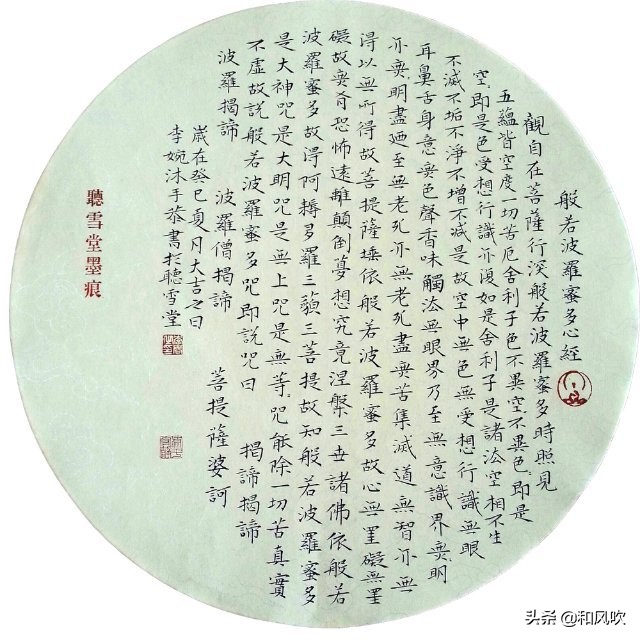 般若波羅蜜多心經
觀自在菩薩行深般若波羅蜜多時照見
五蘊皆空度一切苦厄舍利子色不異空不異色即是
空即是色受想行識亦復如是舍利子是諸法空相不生
不滅不垢不淨不增不減是故空中無色無受想行識無眼
耳鼻舌身意無色聲香味觸法無眼界乃至無意識界無明
亦無明盡廼至無老死亦無老死盡無苦集滅道無智亦無
得以無所得故菩提薩埵依般若波羅蜜多故心無罣礙無罣
礙故無有恐怖遠離顛倒夢想究竟涅槃三世諸佛依般若
波羅蜜多故得阿耨多羅三藐三菩提故知般若波羅蜜多
是大神咒是大明咒是無上咒是無等咒能除一切苦真實
不虛故說般若波羅蜜多咒即說咒曰 揭諦揭諦
波羅揭諦 波羅僧揭諦 菩提薩婆訶
歲在癸巳夏月大吉之日
李婉沐手恭書於聽雪堂
聽雪堂墨痕
头条 @和风吹